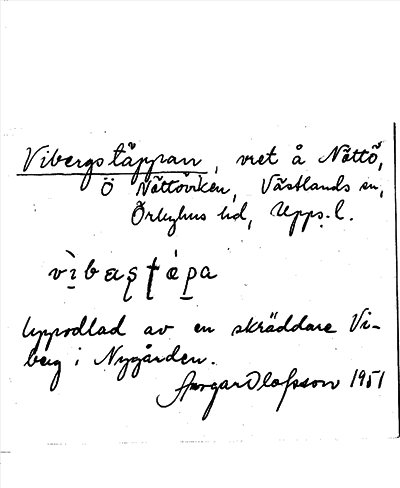 Vibergstäppan, vret å Nöttö,
Ö Nöttöviken, Västlands sn,
Örbyhus hd, Upps. l.
vìbæʂʈápa
Uppodlad av en skräddare Vi-
berg i Nygården.
Ansgar Olofsson 1951